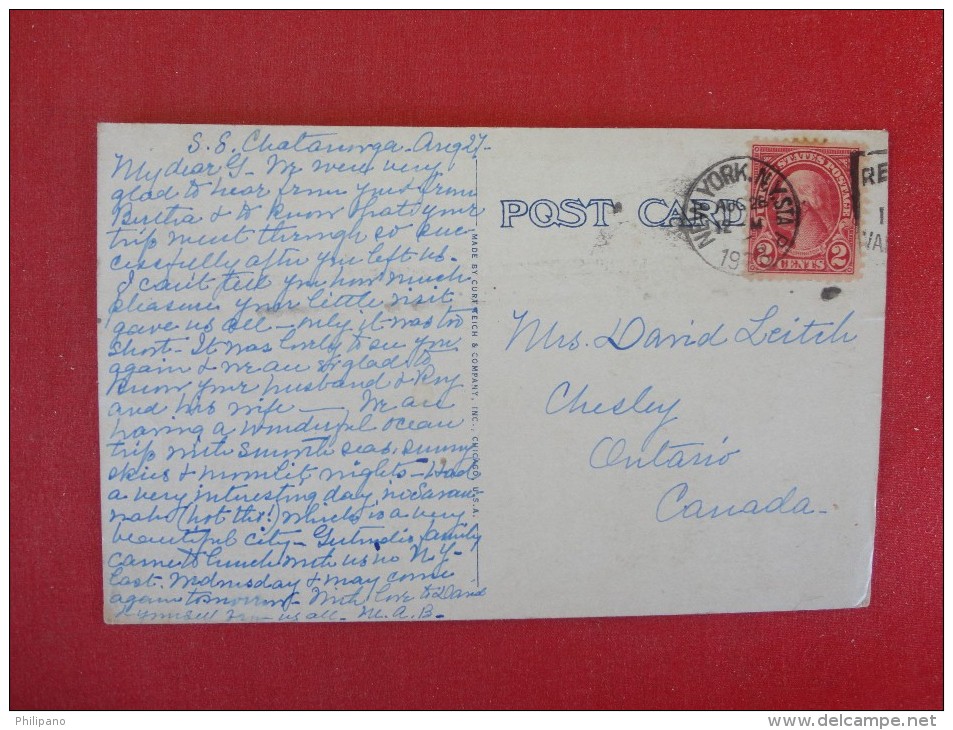 S. S. Chatanooga - Aug 27 -
My dear G - We were very
glad to hear from you & from
Bertha & to know that your
trip went through so suc
cessfully after you left us -
I can't tell you how much
pleasure your little visit
gave us all - only it was too
short - It was lovely to see you
again & we are so glad to
know your husband & Roy
and his wife - We are
having a wonderful ocean
trip with smooth seas, sunny
skies & moonlit nights - Had
a very interesting day in Savan
nah (hot tho'!) which is a very
beautiful city - family
came to lunch with us in N.Y -
last Wednesday & may come
again tomorrow - With love to David
& yourself from us all - M. A. B -
MADE BY CURT TEICH & COMPANY, INC., CHICAGO, U.S.A.
POST CARD
NEW YORK, N.Y. STA
AUG 28
12 M
19
UNITED STATES POSTAGE
2 CENTS 2
RE
I
VA
Mrs. David Leitch
Chesley
Ontario
Canada -
Philipano
www.delcampe.net